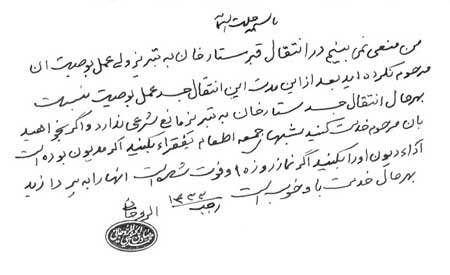 باسمه جلت اسمائه
من منعی نمی بینم در انتقال قبر ستارخان به تبریز ولی عمل بوصیت ان
مرحوم نکرده اید بعد از این مدت این انتقال جسد عمل بوصیت نیست
بهرحال انتقال جسد ستارخان به تبریز مانع شرعی ندارد و اگر بخواهید
بان مرحوم خدمت کنید شبهای جمعه اطعام بفقراء بکنید اگر مدیون بوده است
اداء دیون او را بکنید اگر نماز روزه او فوت شده است انها را به
بهرحال خدمت باو خوب است
رجب ۱۴۳۲
الروحانی